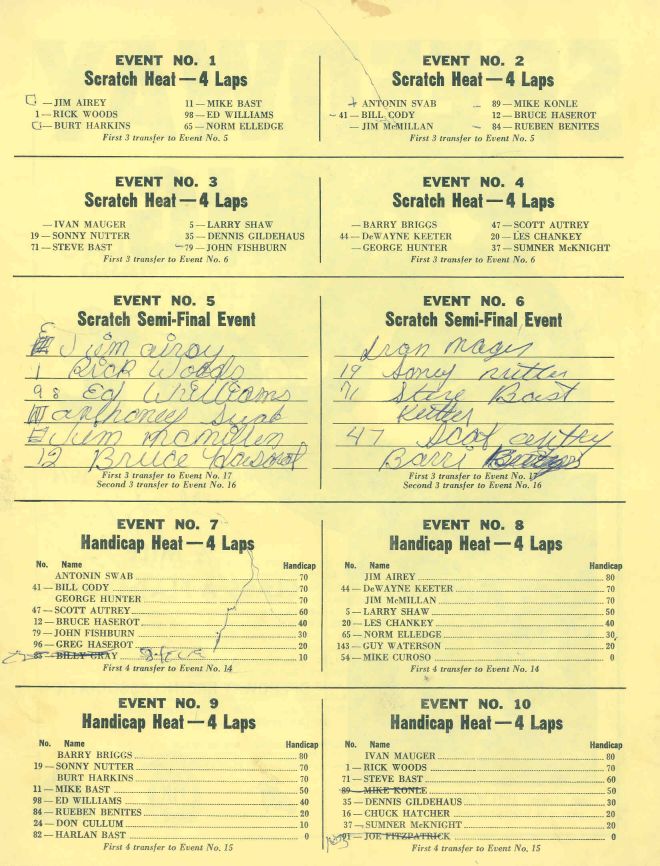 EVENT NO. 1
Scratch Heat — 4 Laps
— JIM AIREY
1 — RICK WOODS
— BURT HARKINS
11 — MIKE BAST
98 — ED WILLIAMS
65 — NORM ELLEDGE
First 3 transfer to Event No. 5
EVENT NO. 2
Scratch Heat — 4 Laps
ANTONIN SVAB
41 — BILL CODY
— JIM McMILLAN
89 — MIKE KONLE
12 — BRUCE HASEROT
84 — RUEBEN BENITES
First 3 transfer to Event No. 5
EVENT NO. 3
Scratch Heat — 4 Laps
— IVAN MAUGER
19 — SONNY NUTTER
71 — STEVE BAST
5 — LARRY SHAW
35 — DENNIS GILDEHAUS
79 — JOHN FISHBURN
First 3 transfer to Event No. 6
EVENT NO. 4
Scratch Heat — 4 Laps
— BARRY BRIGGS
44 — DeWAYNE KEETER
— GEORGE HUNTER
47 — SCOTT AUTREY
20 — LES CHANKEY
37 — SUMNER McKNIGHT
First 3 transfer to Event No. 6
EVENT NO. 5
Scratch Semi-Final Event
Jim airoy
1 Rick Woods
98 Ed Williams
anthoney Suab
Jim mcmillen
12 Bruce
First 3 transfer to Event No. 17
Second 3 transfer to Event No. 16
EVENT NO. 6
Scratch Semi-Final Event
19 Soney nutter
71 Steve Bast
Ketter
47
Barri
First 3 transfer to Event No. 17
Second 3 transfer to Event No. 16
EVENT NO. 7
Handicap Heat — 4 Laps
No. Name Handicap
ANTONIN SWAB 70
41 — BILL CODY 70
GEORGE HUNTER 70
47 — SCOTT AUTREY 60
12 — BRUCE HASEROT 40
79 — JOHN FISHBURN 30
96 — GREG HASEROT 20
85 — BILLY GRAY 10
First 4 transfer to Event No. 14
EVENT NO. 8
Handicap Heat — 4 Laps
No. Name Handicap
JIM AIREY 80
44 — DeWAYNE KEETER 70
JIM McMILLAN 70
5 — LARRY SHAW 50
20 — LES CHANKEY 40
65 — NORM ELLEDGE 30
143 — GUY WATERSON 20
54 — MIKE CUROSO 0
First 4 transfer to Event No. 14
EVENT NO. 9
Handicap Heat — 4 Laps
No. Name Handicap
BARRY BRIGGS 80
19 — SONNY NUTTER 70
BURT HARKINS 70
11 — MIKE BAST 50
98 — ED WILLIAMS 40
84 — RUEBEN BENITES 20
24 — DON CULLUM 10
82 — HARLAN BAST 0
First 4 transfer to Event No. 15
EVENT NO. 10
Handicap Heat — 4 Laps
No. Name Handicap
IVAN MAUGER 80
1 — RICK WOODS 70
71 — STEVE BAST 60
89 — MIKE KONLE 50
35 — DENNIS GILDEHAUS 30
16 — CHUCK HATCHER 20
37 — SUMNER McKNIGHT 20
91 — JOE FITZPATRICK 0
First 4 transfer to Event No. 15